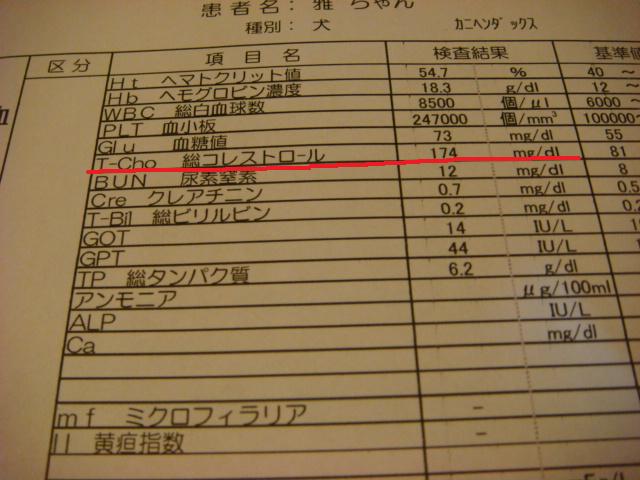 患者名： 雅 ちゃん
種別： 犬 カニヘンダックス
区分 項目名 検査結果 基準値
Ht ヘマトクリット値 54.7 % 40 ～
Hb ヘモグロビン濃度 18.3 g/dl 12 ～
WBC 総白血球数 8500 個/μl 6000 ～
PLT 血小板 247000 個/mm³ 100000～
Glu 血糖値 73 mg/dl 55
T-Cho 総コレストロール 174 mg/dl 81
BUN 尿素窒素 12 mg/dl 8
Cre クレアチニン 0.7 mg/dl 0.5
T-Bil 総ビリルビン 0.2 mg/dl 0.2
GOT 14 IU/L
GPT 44 IU/L
TP 総タンパク質 6.2 g/dl
アンモニア μg/100ml
ALP IU/L
Ca mg/dl
mf ミクロフィラリア -
II 黄疸指数 -